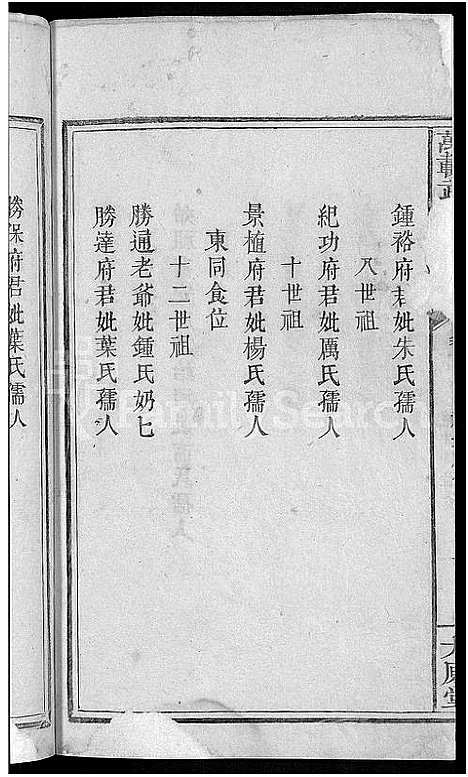 萬載
鍾裕府君妣朱氏孺人
八世祖
紀功府君妣厲氏孺人
十世祖
景植府君妣楊氏孺人
東同食位
十二世祖
勝通老爺妣鍾氏奶七
勝達府君妣葉氏孺人
勝保府君妣葉氏孺人
FamilySearch